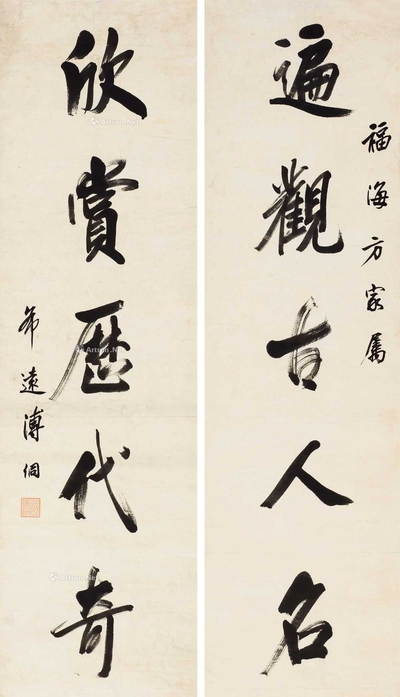 福海方家属
遍觀古人名
欣賞歷代奇
希遠溥侗